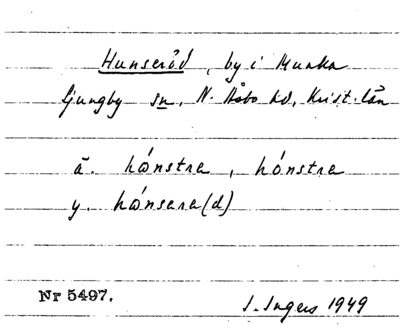 Hunseröd, by i Munka
ljungby sn, N. Åsbo hd, Krist. län
ä. hǿnstra, hónstra
y. hǿnsera(d)
Nr 5497.
I. Ingers 1949